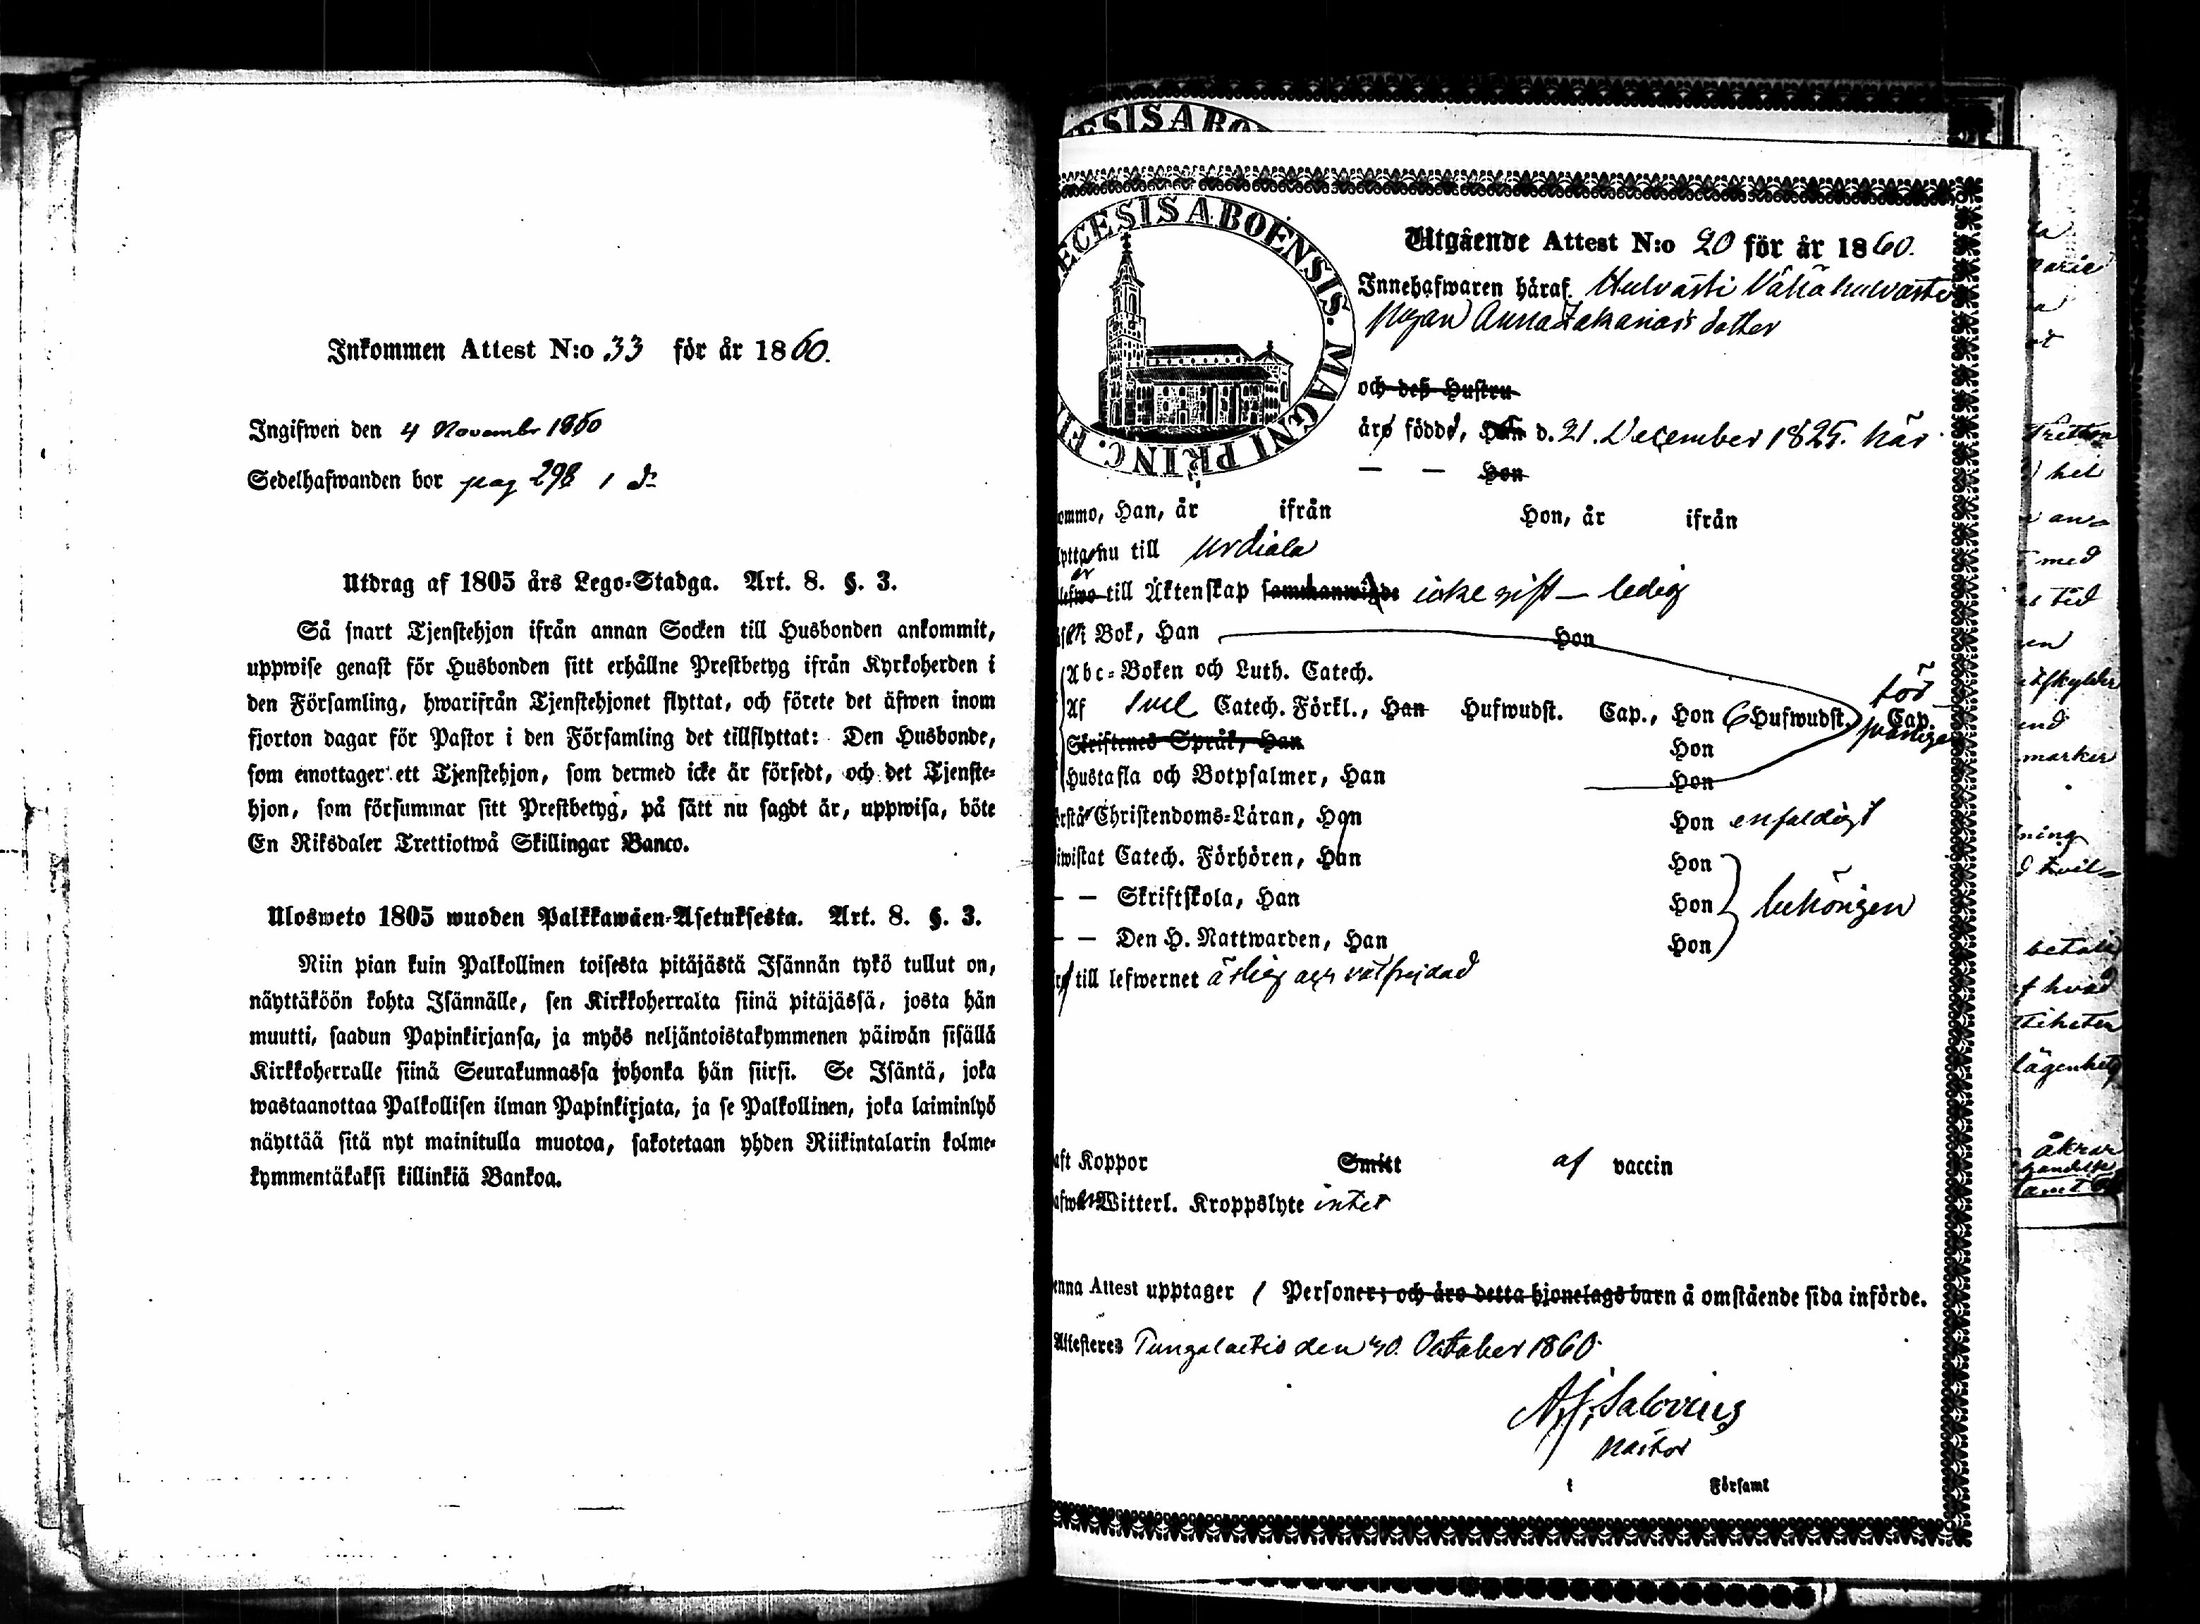 Inkommen Attest N:o 33 för år 1860.
Ingifwen den 4 Novembr 1860
Sedelhafwanden bor pag 298
Utdrag af 1805 års Lego-Stadga. Art. 8. §. 3.
Så snart Tjenstehjon ifrån annan Socken till Husbonden ankommit,
uppwise genast för Husbonden sitt erhållne Prestbetyg ifrån Kyrkoherden i
den Församling, hwarifrån Tjenstehjonet flyttat, och förete det äfwen inom
fjorton dagar för Pastor i den Församling det tillflyttat: Den Husbonde,
som emottager ett Tjenstehjon, som dermed icke är försedt, och det Tjenste-
hjon, som försummar sitt Prestbetyg, på sätt nu sagdt är, uppwisa, böte
En Riksdaler Trettiotwå Skillingar Banco.
Ulosweto 1805 wuoden Palkkawäen-Asetuksesta. Art. 8. §. 3.
Niin pian kuin Palkollinen toisesta pitäjästä Isännän tykö tullut on,
näyttäköön kohta Isännälle, sen Kirkkoherralta siinä pitäjässä, josta hän
muutti, saadun Papinkirjansa, ja myös neljäntoistakymmenen päiwän sisällä
Kirkkoherralle siinä Seurakunnassa johonka hän siirsi. Se Isäntä, joka
wastaanottaa Palkollisen ilman Papinkirjata, ja se Palkollinen, joka laiminlyö
näyttää sitä nyt mainitulla muotoa, sakotetaan yhden Riikintalarin kolme-
kymmentäkaksi killinkiä Bankoa.
ECESIS ABOENSIS. MAGNI PRINC. FI
Utgående Attest N:o 20 för år 1860.
Innehafwaren häraf Hulvasti Vähähulvasti
pigan Anna Zakariasdotter
och deß Hustru
äro födde, Han d. 21. December 1825. här
— — Hon
ommo, Han, år ifrån Hon, år ifrån
nu till Urdiala
är
till Äktenskap icke gift — ledig
i Bok, Han Hon
Abc-Boken och Luth. Catech.
Af Svel Catech. Förkl., Han Hufwudst. Cap., Hon 6 Hufwudst. Cap.
Skriftenes Språk, Han Hon
Hustafla och Botpsalmer, Han Hon
Christendoms-Läran, Han Hon enfaldigt
iwistat Catech. Förhören, Han Hon
— — Skriftskola, Han Hon behörigen
— — Den H. Nattwarden, Han Hon
till lefwernet ärlig och välfrejdad
aft Koppor Smitt af vaccin
Witterl. Kroppslyte intet
enna Attest upptager 1 Personer; och äro detta hjonelags barn å omstående sida införde.
Attesteres Pungalaitio den 30. October 1860.
A. J. Salovius
Pastor
i Församl